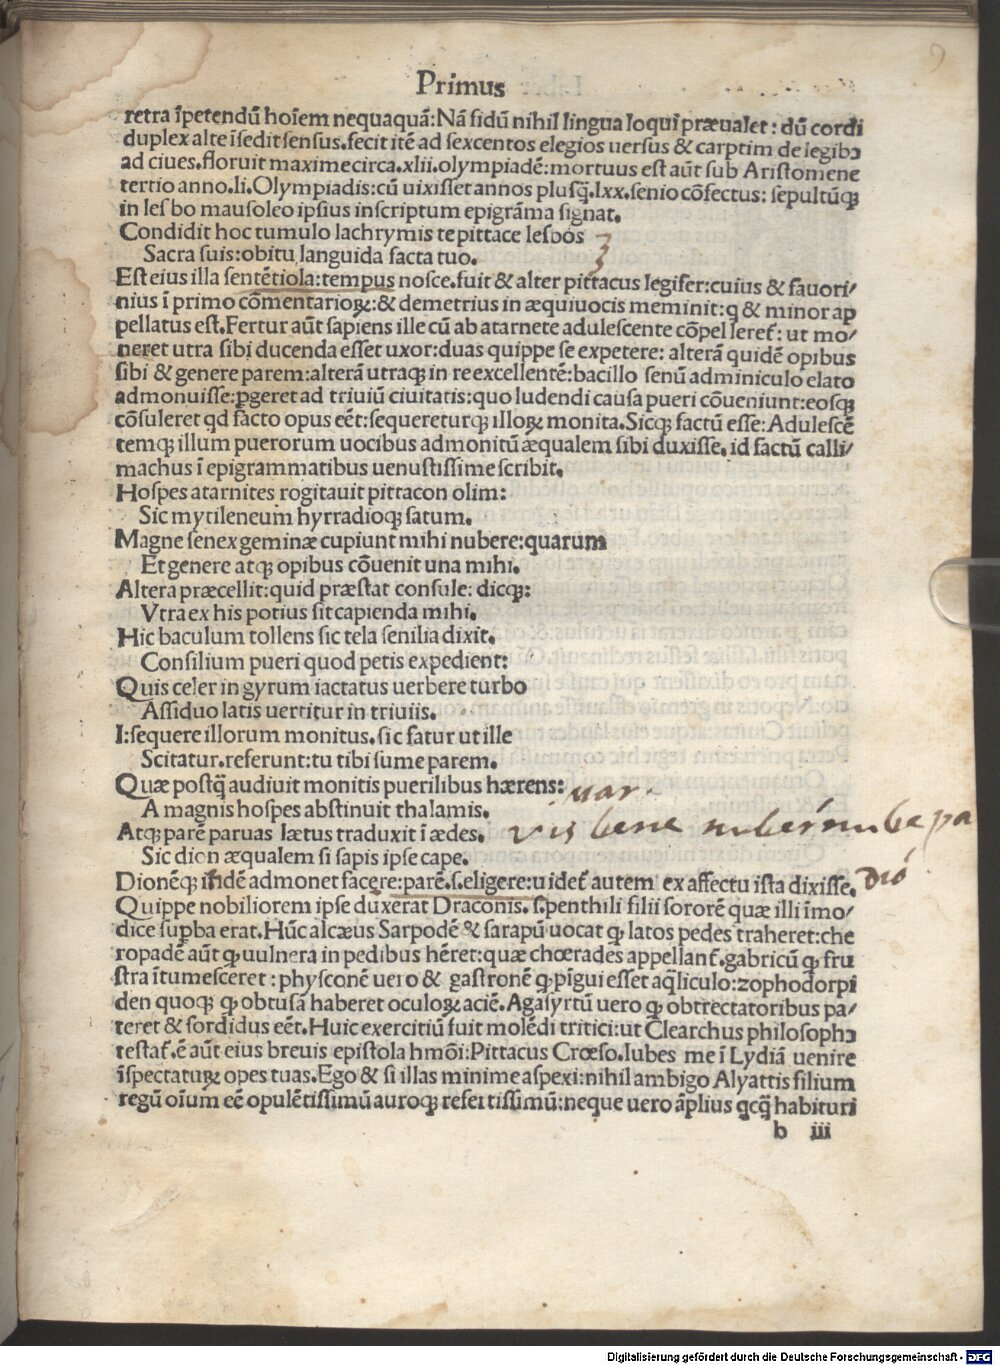 9
Primus
retra īpetendū hoīem nequaquā:Nā fidū nihil lingua loqui præualet: dū cordi
duplex alte īsedit sensus.fecit itē ad sexcentos elegios uersus & carptim de legibꝯ
ad ciues.floruit maxime circa.xlii.olympiadē:mortuus est aūt sub Aristomene
tertio anno.li.Olympiadis:cū uixisset annos plusq̄.lxx.senio cōfectus: sepultūqꝫ
in lesbo mausoleo ipsius inscriptum epigrāma signat.
Condidit hoc tumulo lachrymis te pittace lesbos
Sacra suis:obitu languida facta tuo.
Est eius illa sentētiola:tempus nosce.fuit & alter pittacus legifer:cuius & fauori/
nius ī primo cōmentarioꝝ:& demetrius in æquiuocis meminit:q & minor ap
pellatus est.Fertur aūt sapiens ille cū ab atarnete adulescente cōpelleret̄: ut mo/
neret utra sibi ducenda esset uxor:duas quippe se expetere: alterā quidē opibus
sibi & genere parem:alterā utraqꝫ in re excellentē:bacillo senū adminiculo elato
admonuisse:ꝑgeret ad triuiū ciuitatis:quo ludendi causa pueri cōueniunt:eosqꝫ
cōsuleret qd facto opus eēt:sequereturqꝫ illoꝝ monita.Sicqꝫ factū esse:Adulescē
temqꝫ illum puerorum uocibus admonitū æqualem sibi duxisse.id factū calli/
machus ī epigrammatibus uenustissime scribit.
Hospes atarnites rogitauit pittacon olim:
Sic mytileneum hyrradioqꝫ satum.
Magne senex geminæ cupiunt mihi nubere:quarum
Et genere atqꝫ opibus cōuenit una mihi.
Altera præcellit:quid præstat consule: dicqꝫ:
Vtra ex his potius sit capienda mihi.
Hic baculum tollens sic tela senilia dixit.
Consilium pueri quod petis expedient:
Quis celer in gyrum iactatus uerbere turbo
Assiduo latis uertitur in triuiis.
I:sequere illorum monitus.sic fatur ut ille
Scitatur.referunt:tu tibi sume parem.
Quæ postq̄ audiuit monitis puerilibus hærens:
A magnis hospes abstinuit thalamis.
Atqꝫ parē paruas lætus traduxit ī ædes.
Sic dion æqualem si sapis ipse cape.
uar.
vis bene nuber nube pa
Dionēqꝫ itidē admonet facere:parē.s.eligere:uidet̄ autem ex affectu ista dixisse.
Dio
Quippe nobiliorem ipse duxerat Draconis.s.penthili filii sororē quæ illi īmo/
dice suꝑba erat.Hūc alcæus Sarpodē & sarapū uocat ꝙ latos pedes traheret:che
ropadē aūt ꝙ uulnera in pedibus hēret:quæ chœrades appellant̄.gabricū ꝙ fru
stra ītumesceret:physconē uero & gastronē ꝙ pīgui esset aq̄liculo:zophodorpi
den quoqꝫ ꝙ obtusā haberet oculoꝝ aciē.Agasyrtū uero ꝙ obtrectatoribus pa/
teret & sordidus eēt.Huic exercitiū fuit molēdi tritici:ut Clearchus philosophꝯ
testat̄.ē aūt eius breuis epistola hmōi:Pittacus Crœso.Iubes me ī Lydiā uenire
īspectatuꝝ opes tuas.Ego & si illas minime aspexi:nihil ambigo Alyattis filium
regū oīum eē opulētissimū auroqꝫ refertissimū:neque uero āplius qcq̄ habituri
b iii
Digitalisierung gefördert durch die Deutsche Forschungsgemeinschaft - DFG